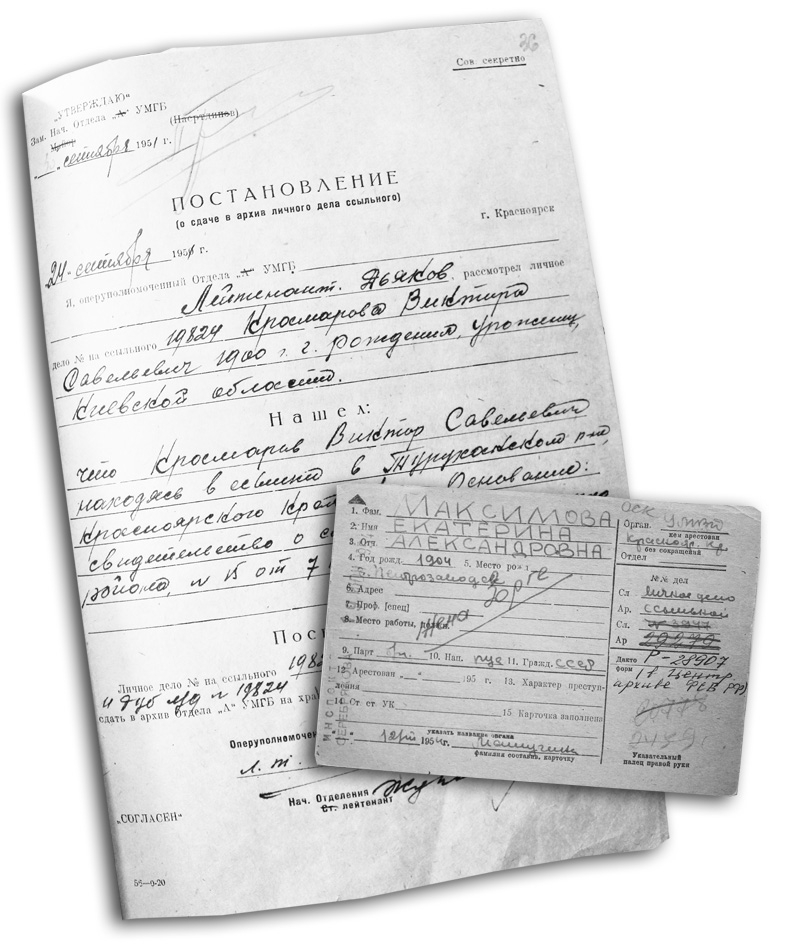 36
Сов. секретно
„УТВЕРЖДАЮ“
Зам. Нач. Отдела „А“ УМГБ
Майор (Насрудинов)
„ “ сентября 1951 г.
ПОСТАНОВЛЕНИЕ
(о сдаче в архив личного дела ссыльного)
г. Красноярск
„24“ сентября 1951 г.
Я, оперуполномоченный Отдела „А“ УМГБ
Лейтенант Дьяков рассмотрел личное
дело № на ссыльного 19824 Кросмарова Виктора
Савельевич 1900 г. г. рождения, уроженец
Киевской области.
Нашел:
что Кросмарив Виктор Савельевич
находясь в ссылке в Туруханском р-не,
Красноярского Кра Основание:
свидетельство о с
района, № 15 от 7
Пос
Личное дело № на ссыльного 1982
и дубл 19824
сдать в архив Отдела „А“ УМГБ на хра
Оперуполномоче
л. т.
Нач. Отделения
Ст. лейтенант
„СОГЛАСЕН“
56—0-20
1. Фам. МАКСИМОВА
2. Имя ЕКАТЕРИНА
3. Отч. АЛЕКСАНДРОВНА
4. Год рожд. 1904 5. Место рож
г. Петрозаводск
6. Адрес
7. Проф. [спец]
8. Место работы,
жена Зорге
9. Парт б/п. 10. Нац. рус 11. Гражд. СССР
12. Арестован „ “ 195 г. 13. Характер преступ-
ления
14. Ст. ст. УК 15 Карточка заполнена
указать название органа
1954г.
фамилия составив. карточку
Орган.
кем арестован
Краснояр. Кр.
без сокращений
Отдел
№№ дел
Сл личное дело
Ар. ссыльной
Сл.
Ар
Дакто Р-28907
форм (в Центр
архиве ФСБ РФ)
Указательный
палец правой руки